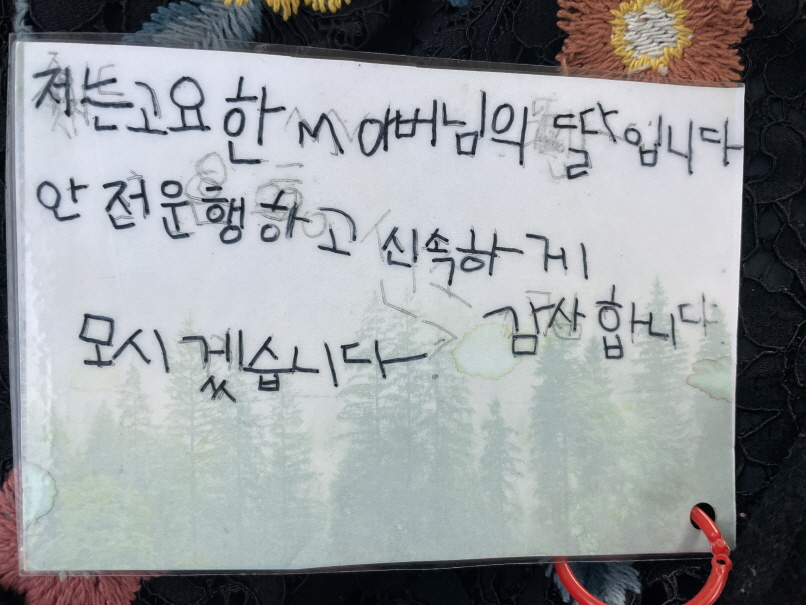 저는고요한 M 아버님의 딸입니다
안전운행하고 신속하게
모시겠습니다 감사합니다